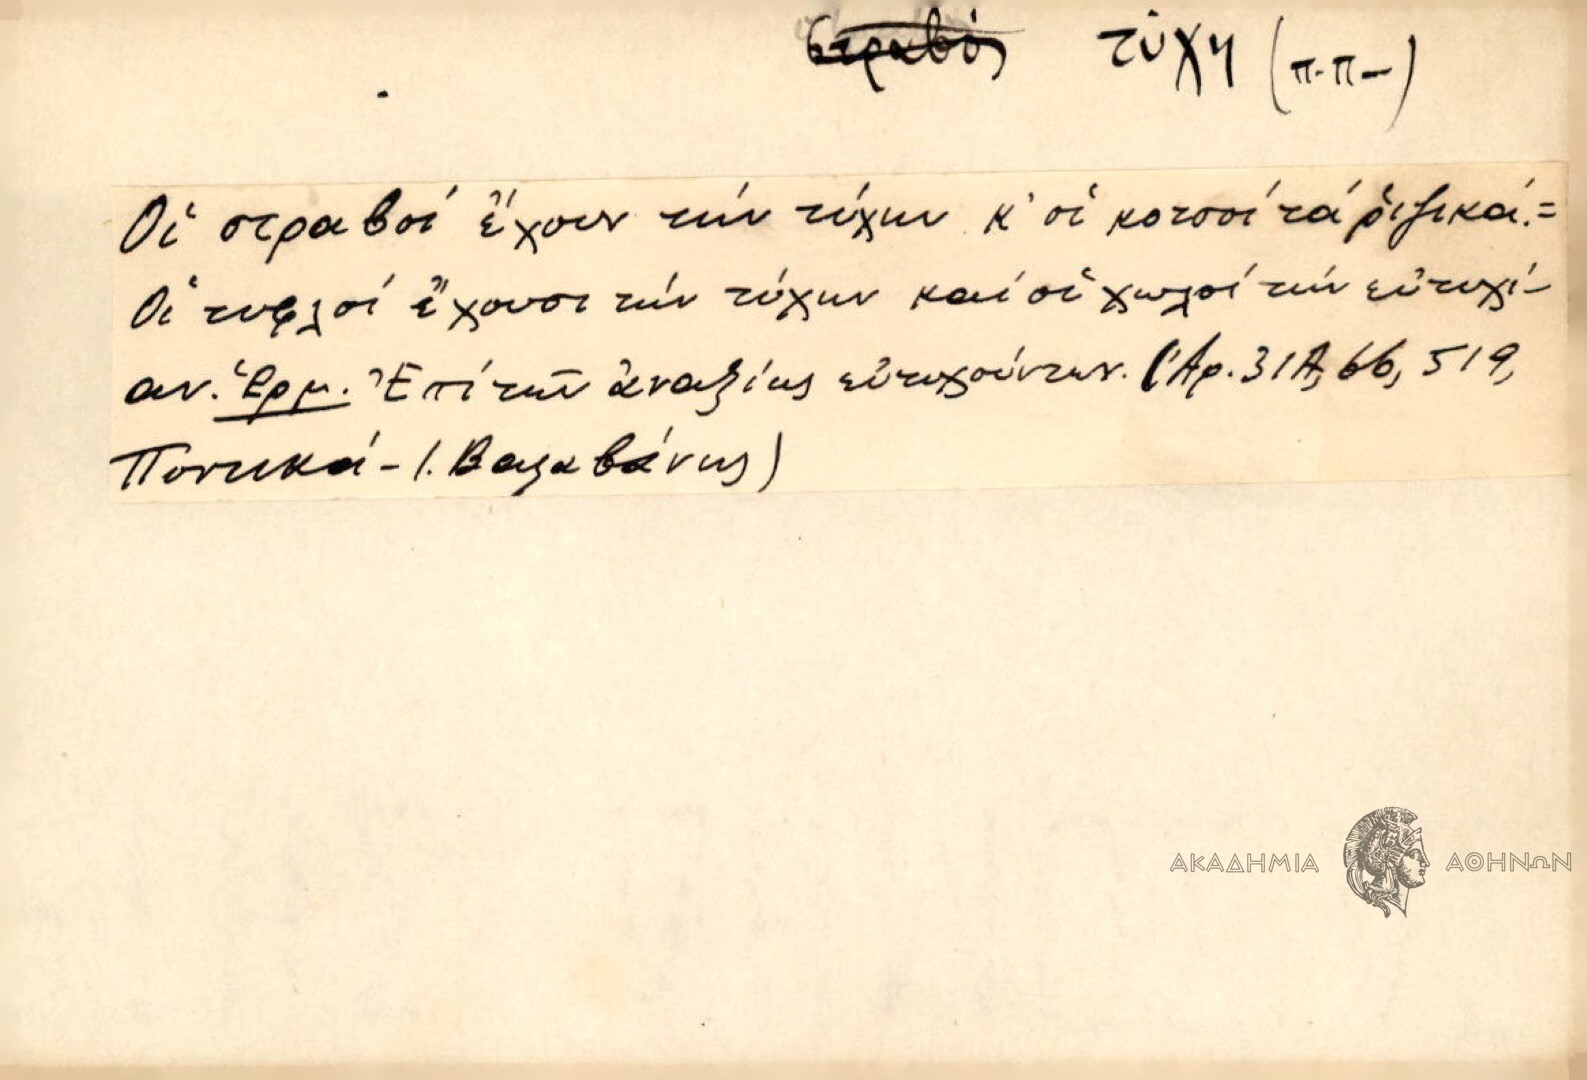 στραβός τύχη (π.π-)
Οἱ στραβοί ἔχουν τήν τύχην κ' οἱ κοτσοί τά ῥιζικά.=
Οἱ τυφλοί ἔχουσι τήν τύχην καί οἱ χωλοί τήν εὐτυχί-
αν. Ἑρμ. Ἐπί τῶν ἀναξίως εὐτυχούντων. (Ἀρ. 31Α, 66, 519,
Ποντικά - Ι. Βαλαβάνης)
ΑΚΑΔΗΜΙΑ ΑΘΗΝΩΝ